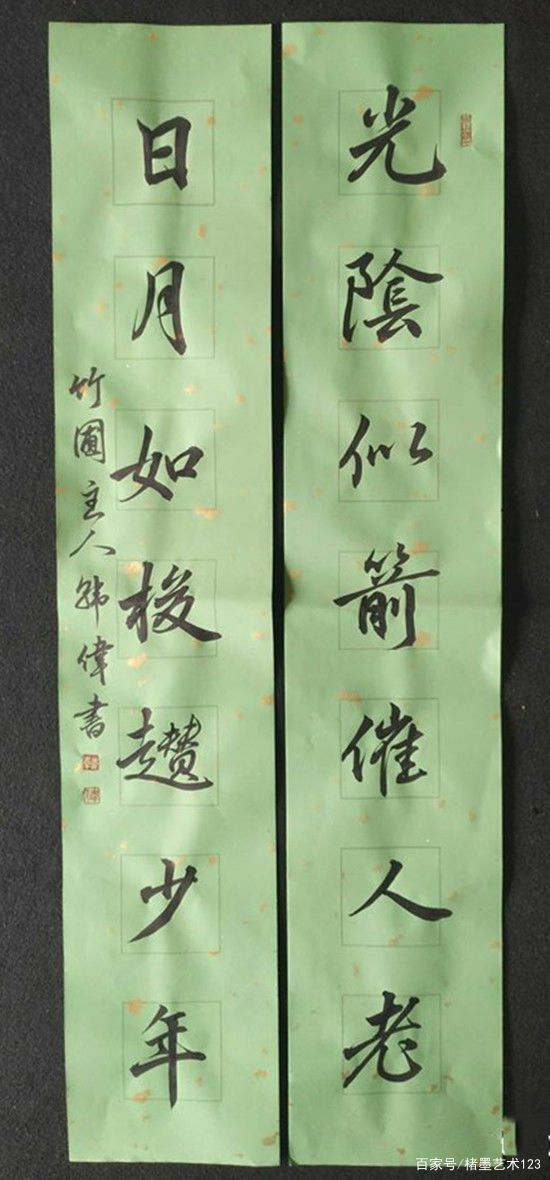 光陰似箭催人老
日月如梭趲少年
竹圃主人韩偉書
百家号/楮墨艺术123